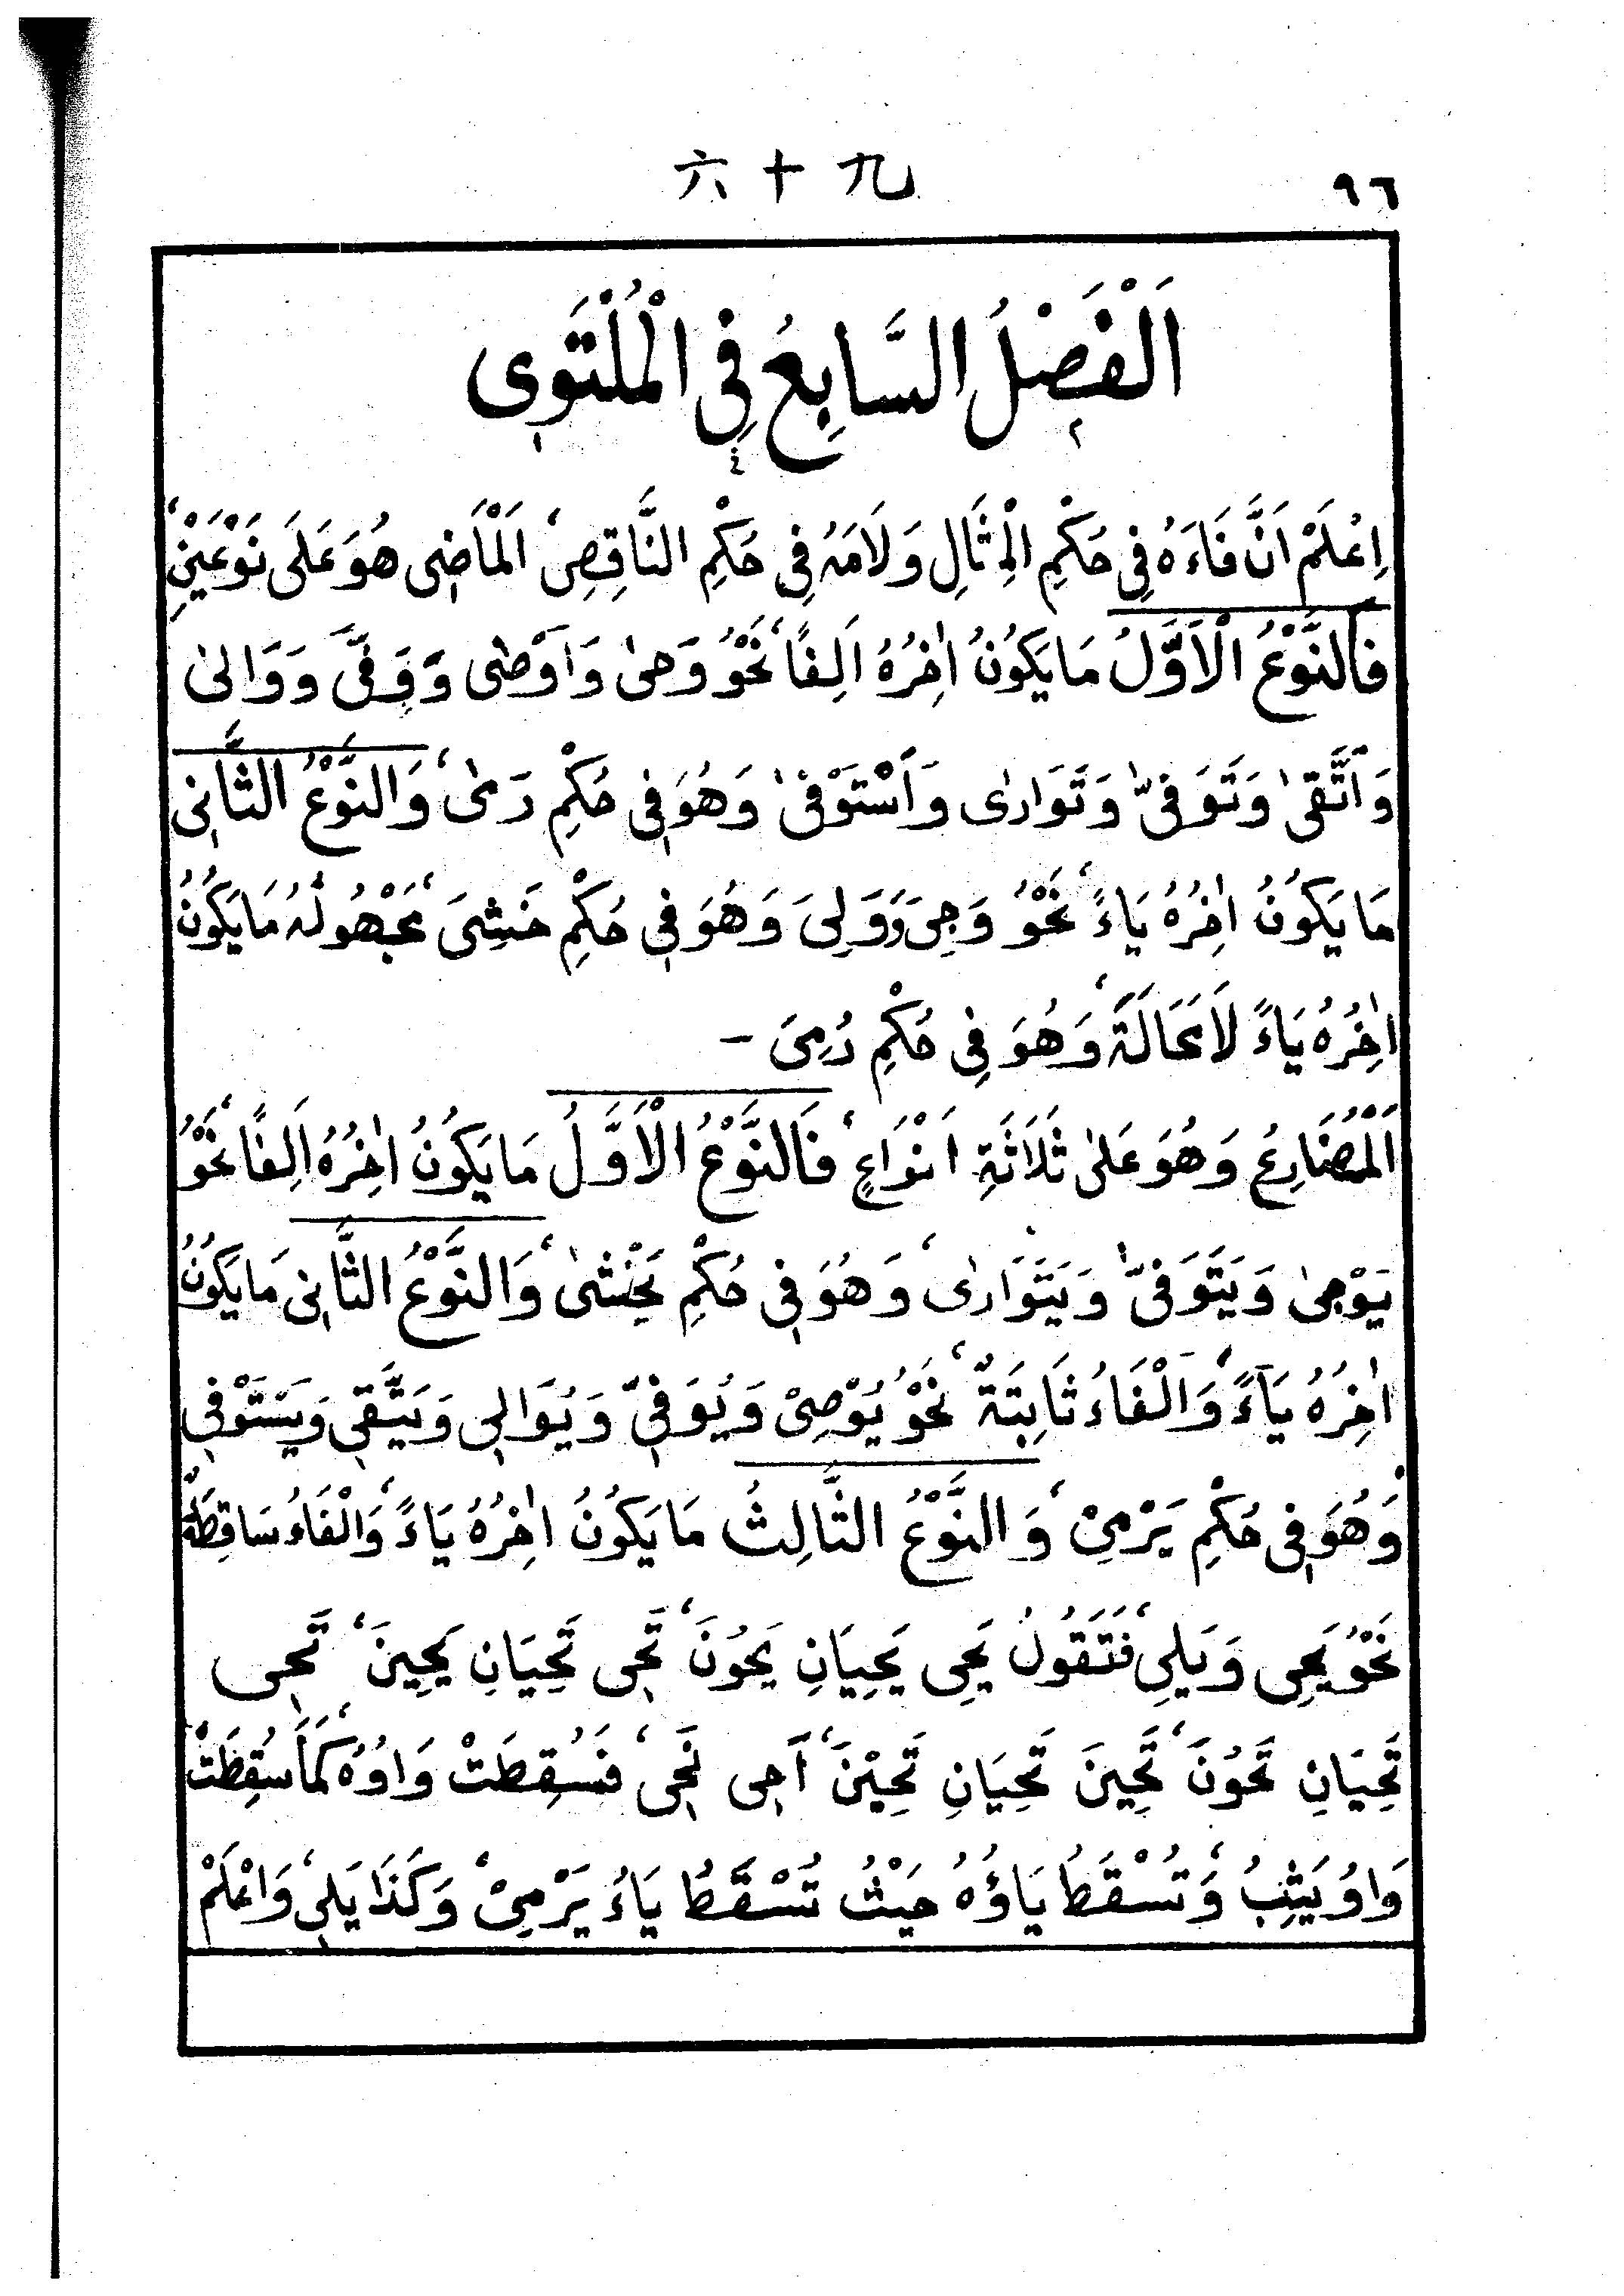 六十九
٩٦
اَلْفَصْلُ السَّابِعُ فِى الْمُلْتَوِى
اِعْلَمْ اَنَّ فَاءَهُ فِى حُكْمِ الْمِثَالِ وَلَامَهُ فِى حُكْمِ النَّاقِصِ، اَلْمَاضِى هُوَ عَلَى نَوْعَيْنِ،
فَالنَّوْعُ الْاَوَّلُ مَا يَكُونُ اٰخِرُهُ اَلِفًا، نَحْوُ وَحىٰ وَاَوْصٰى وَوَفّٰى وَوَالىٰ
وَاتَّقىٰ وَتَوَفىّٰ وَتَوَارىٰ وَاسْتَوْفىٰ وَهُوَ فِى حُكْمِ رَمىٰ، وَالنَّوْعُ الثَّانِى
مَا يَكُونُ اٰخِرُهُ يَاءً، نَحْوُ وَجِىَ وَوَلِىَ وَهُوَ فِى حُكْمِ خَشِىَ، مَجْهُولُهُ مَا يَكُونُ
اٰخِرُهُ يَاءً لَا مَحَالَةَ، وَهُوَ فِى حُكْمِ رُمِىَ –
اَلْمُضَارِعُ وَهُوَ عَلىٰ ثَلَاثَةِ اَنْوَاعٍ، فَالنَّوْعُ الْاَوَّلُ مَا يَكُونُ اٰخِرُهُ اَلِفًا، نَحْوُ
يَوْجىٰ وَيَتَوَفىّٰ وَيَتَوَارىٰ، وَهُوَ فِى حُكْمِ يَخْشىٰ، وَالنَّوْعُ الثَّانِى مَا يَكُونُ
اٰخِرُهُ يَاءً، وَالْفَاءُ ثَابِتَةٌ، نَحْوُ يُوْصِىْ وَيُوَفِىّ وَيُوَالِى وَيَتَّقِى وَيَسْتَوْفِى
وَهُوَ فِى حُكْمِ يَرْمِىْ، وَالنَّوْعُ الثَّالِثُ مَا يَكُونُ اٰخِرُهُ يَاءً، وَالْفَاءُ سَاقِطَةٌ
نَحْوُ يَحِى وَيَلِى، فَتَقُولُ يَحِى يَحِيَانِ يَحُونَ، تَحِى تَحِيَانِ يَحِينَ، تَحِى
تَحِيَانِ تَحُونَ، تَحِينَ تَحِيَانِ تَحِيْنَ، اَحِى نَحِى، فَسُقِطَتْ وَاوُهُ، كَمَا سُقِطَتْ
وَاوُ يَثِبُ، وَتُسْقَطُ يَاؤُهُ حَيْثُ تُسْقَطُ يَاءُ يَرْمِىْ، وَكَذَا يَلِى، وَاعْلَمْ